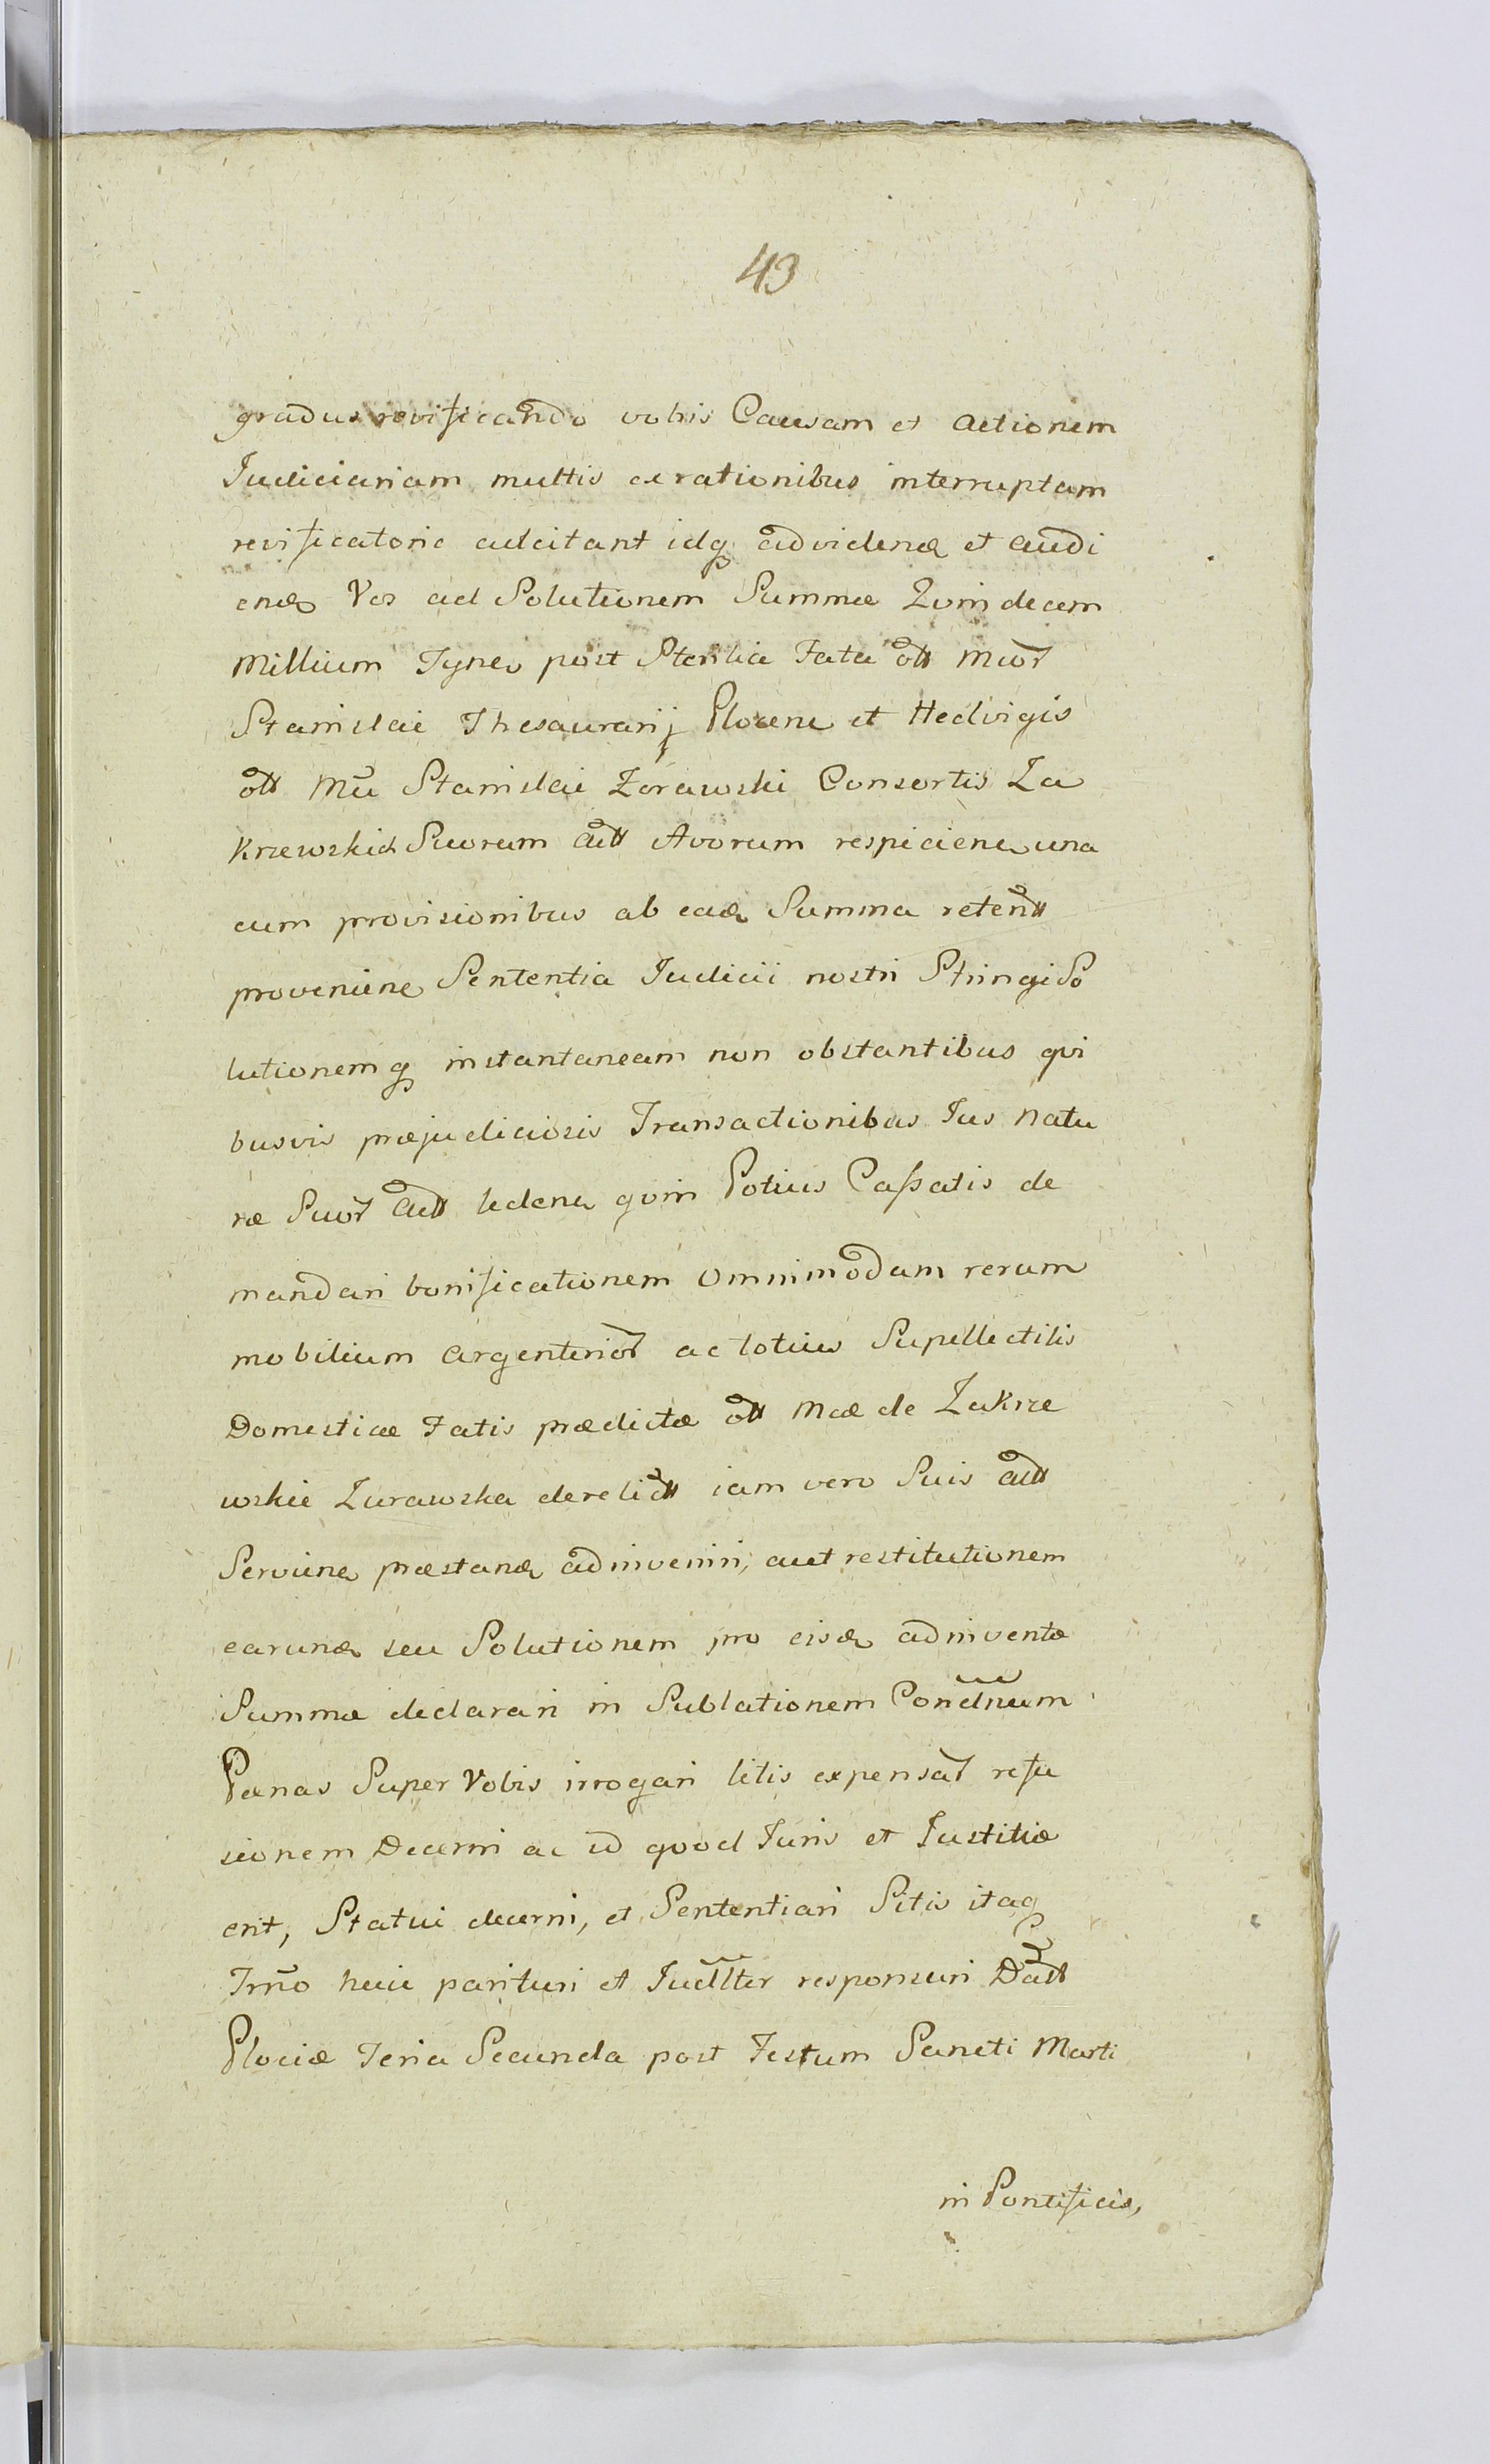 43
gradus revificando vobis Causam et actionem
Judiciariam multis ex rationibus interruptam
revificatorie adcitant idq advidend et audi
end Vos ad Solutionem Summæ Quindecem
Millium Tynf post Sterilia Fata olt Mcor
Stanislai Thesaurarij Plocen et Hedvigis
olt Mci Stanislai Zorawski Consortis Za
krzewskich Suorum Act Avorum respicien una
cum provisionibus ab ead Summa retent
provenien Sententia Judicii nostri Stringi So
lutionemq instantaneam non obstantibus qvi
busvis præjudiciosis Transactionibus Jus Natu
ræ Suor Act leden qvin Potius Cassatis de
mandari bonificationem omnimodam rerum
mobilium argenterior ac totius Supellectilis
Domesticæ Fatis prædictæ olt Mcæ de Zakrze
wskie Zurawska derelict iam vero Suis act
Servien præstand adinveniri, aut restitutionem
earund seu Solutionem pro eisd adinventæ
Summæ declarari in Sublationem Condnum
Pænas Super Vobis irrogari litis expensar refu
sionem Decerni ac id qvod Juris et Justitiæ
erit, Statui decerni, et Sententiari Sitis itaq
Trno huic parituri et Judllter responsuri Datt
Plociæ Feria Secunda post Festum Sancti Marti
in Pontificis,